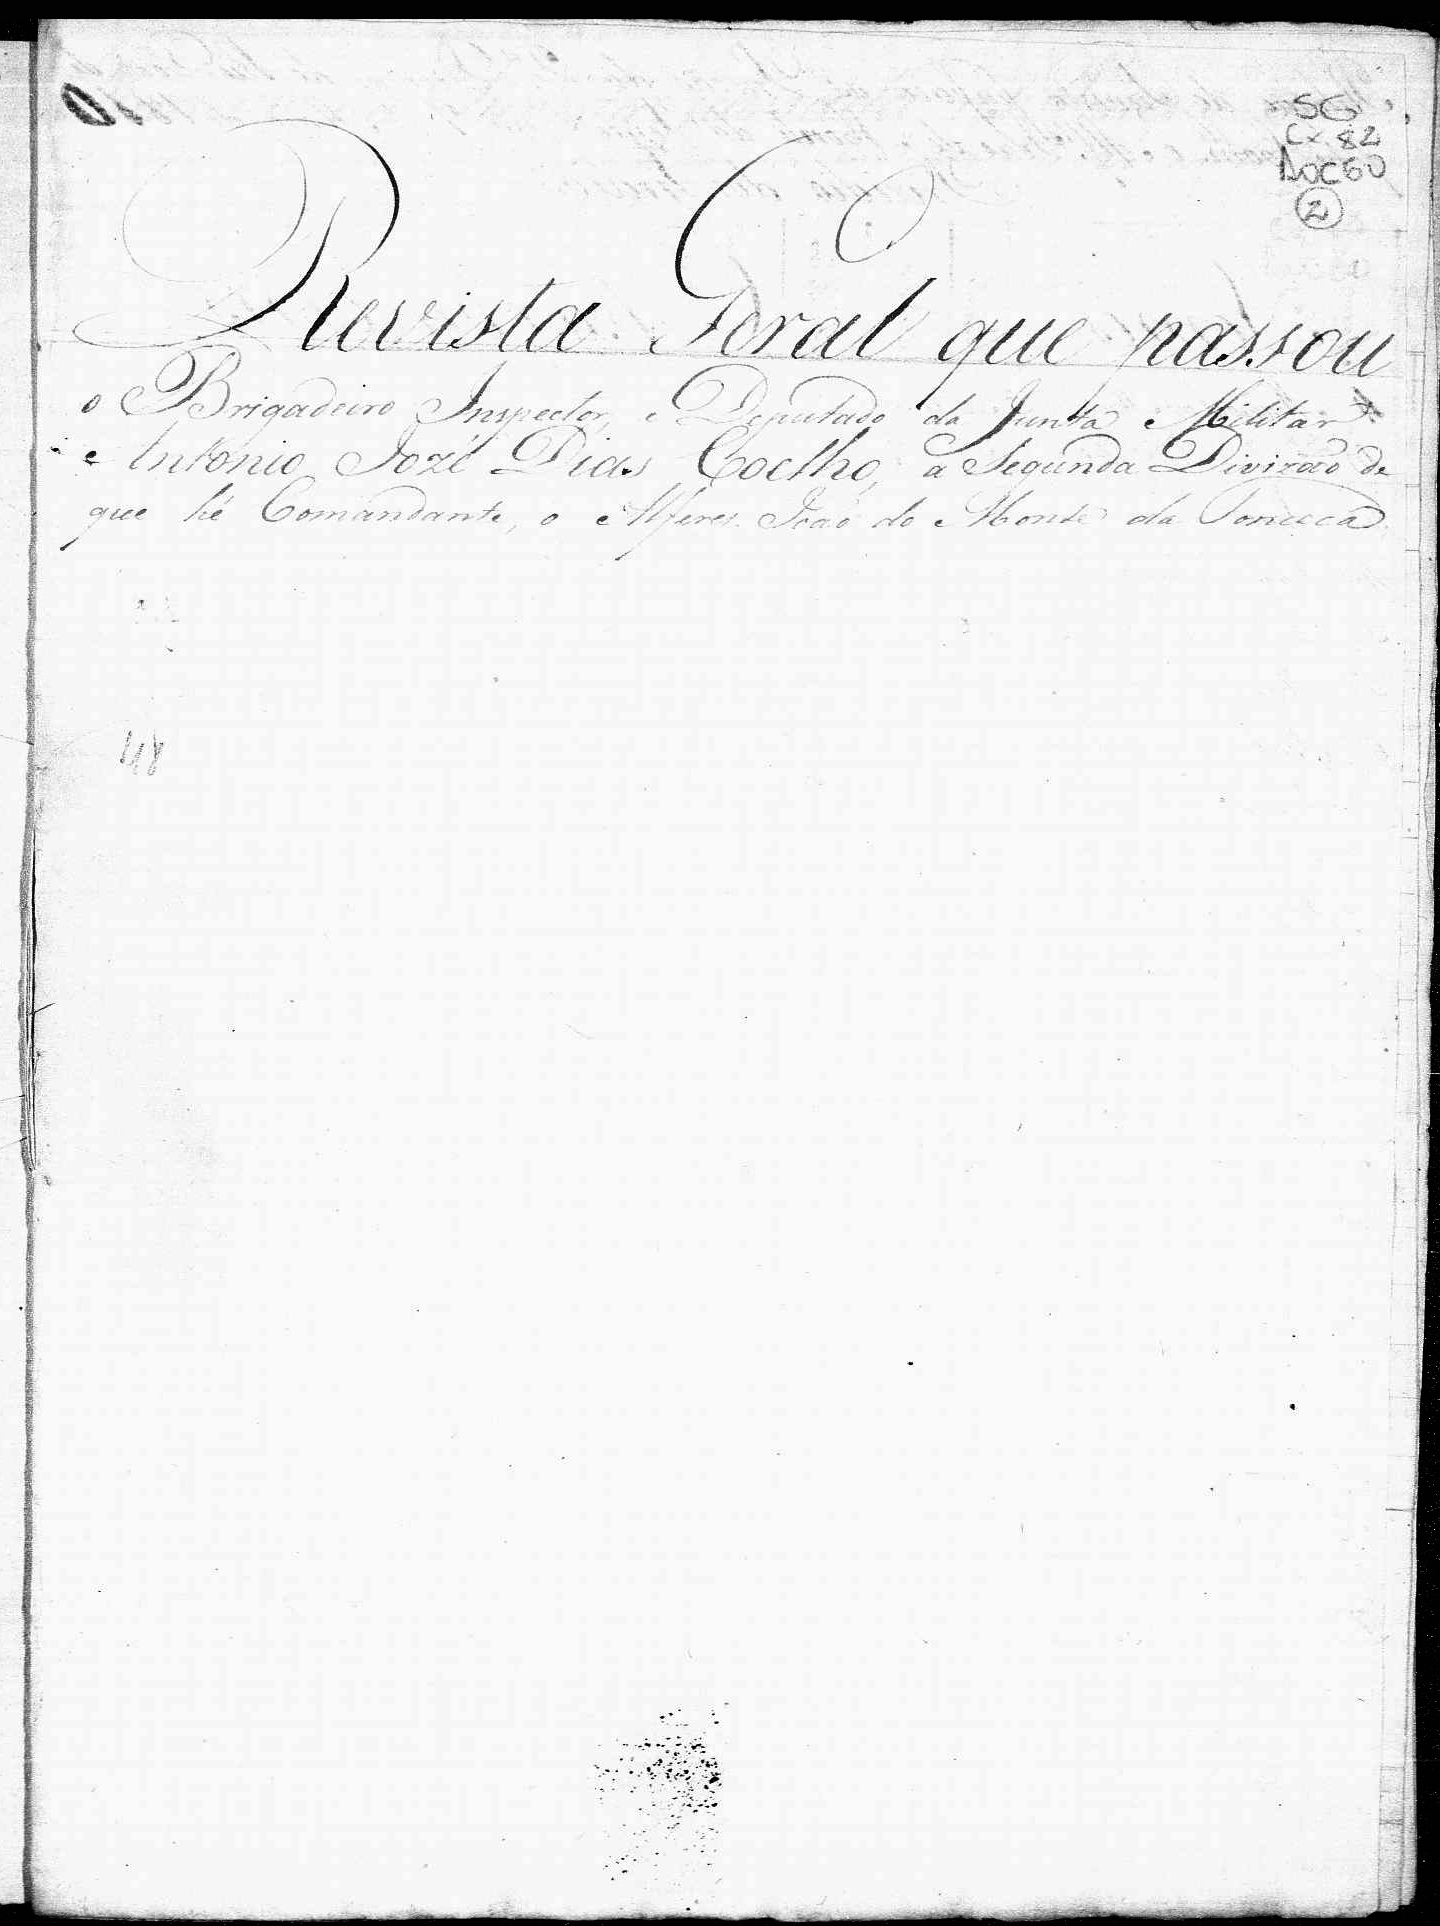 SG
Cx. 82
DOC 60
2
Revista Geral que passou
o Brigadeiro Inspector, e Deputado da Junta Militar
Antonio Jozé Dias Coelho, a Segunda Divizaõ de
que hé Comandante, o Alferes Joaõ do Monte da Fonceca